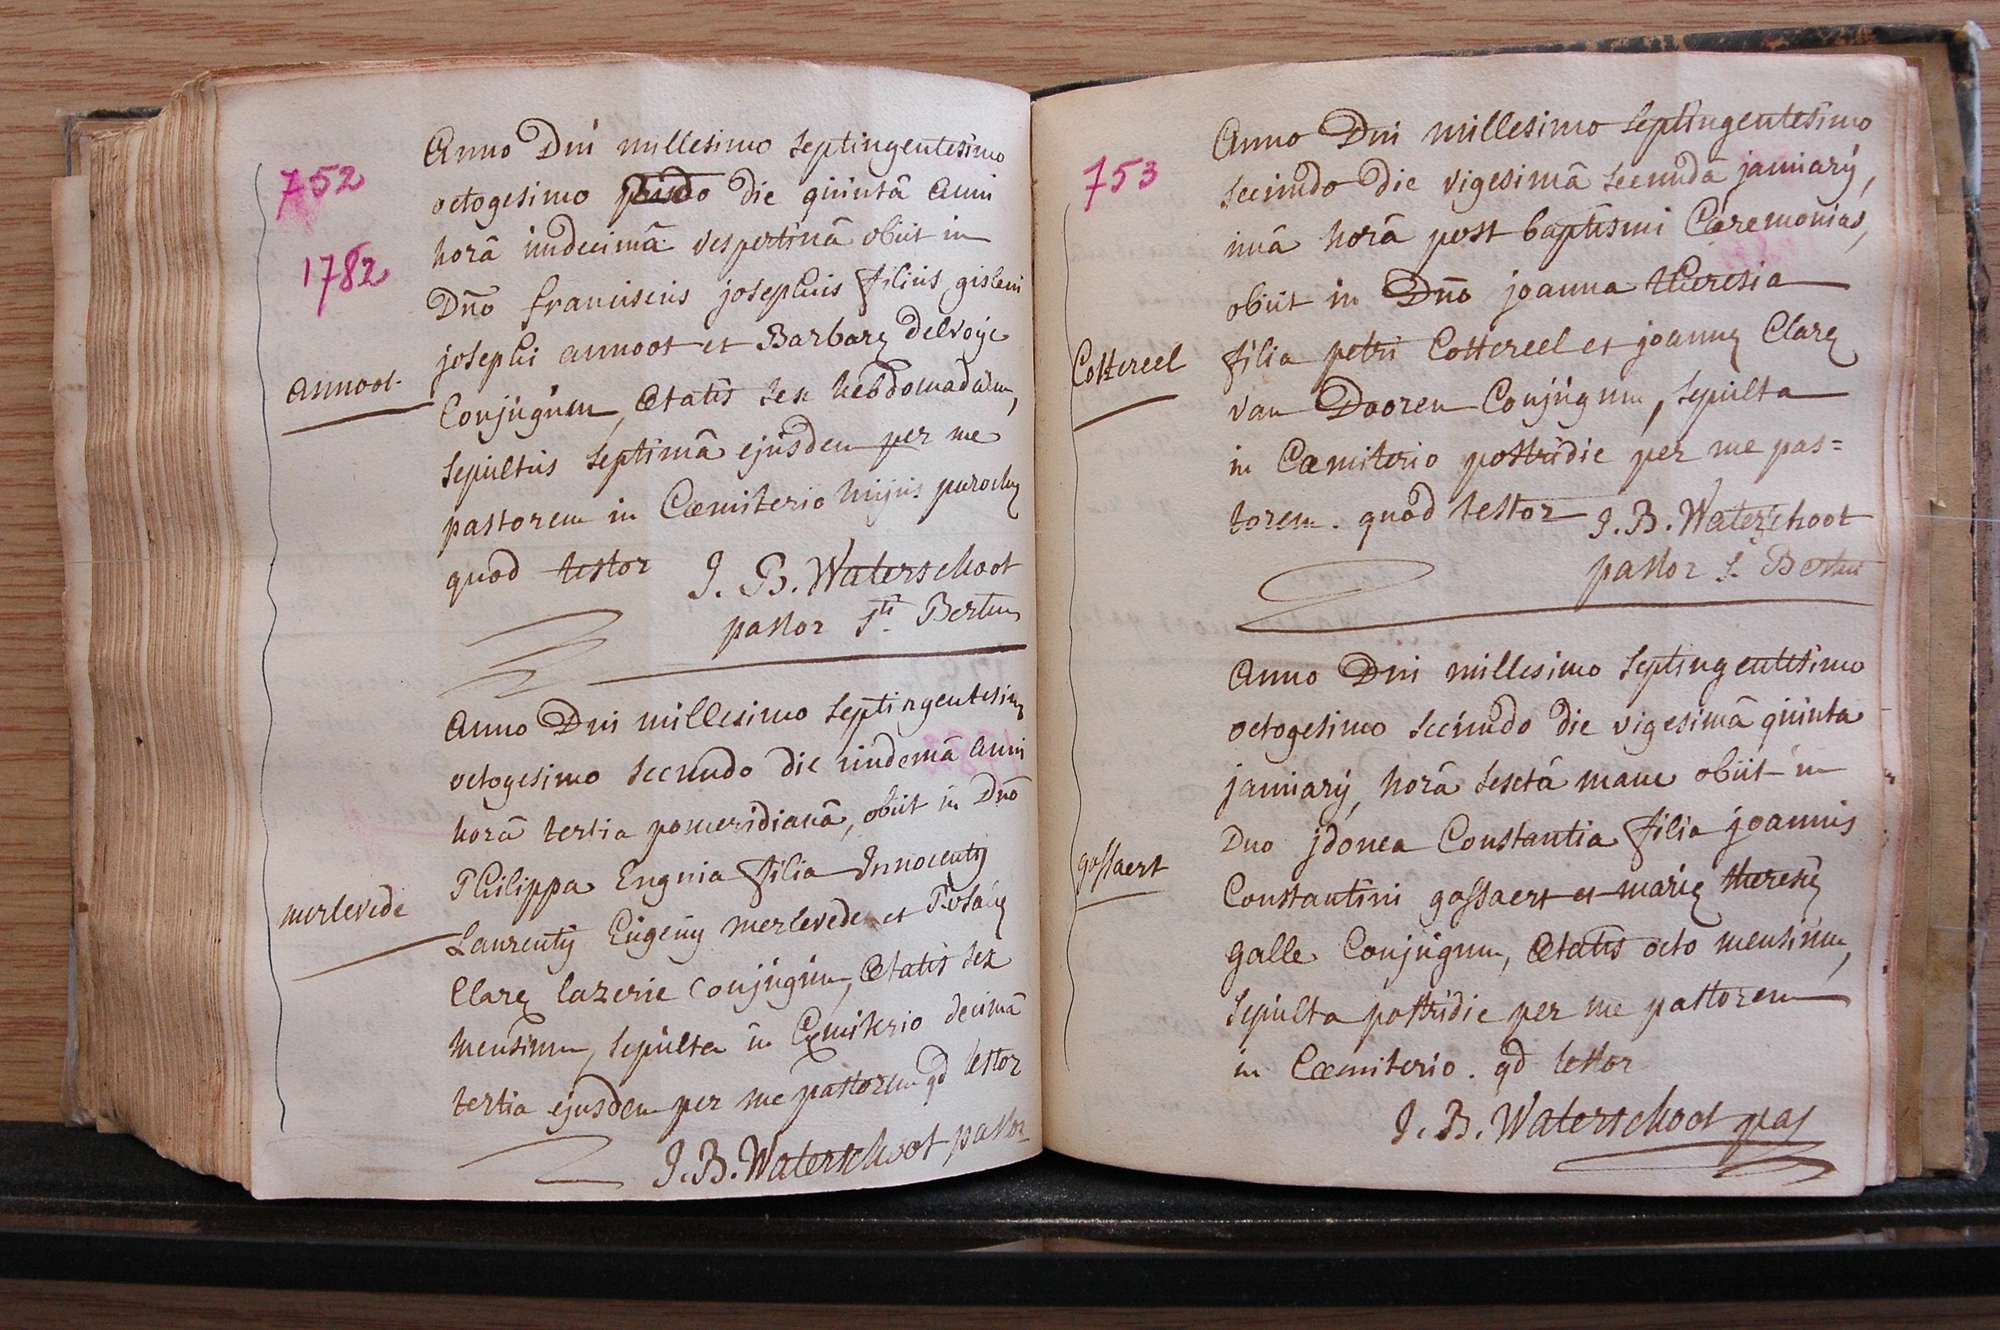 752
1782
Anno Dni millesimo septingentesimo
octogesimo die quintâ anni
horâ undecimâ vespertinâ obiit in
Dño franciscus josephus filius gisleni
josephi annoot et Barbaræ delvoije
annoot
Conjugum, ætatis sex hebdomadum,
sepultus septimâ ejusdem per me
pastorem in Cœmiterio hujus parochiæ
quod testor J. B. Waterschoot
pastor Sti Bertini
Anno Dni millesimo septingentesimo
octogesimo secundo die undemâ anni
horâ tertia pomeridianâ, obiit in Dño
Philippa Eugnia filia Innocentij
merlevede
Laurentij Eugenij merlevede et Rosæ
Claræ lazerie Conjugum, ætatis sex
mensium, sepulta in Cœmiterio decimâ
tertia ejusdem per me pastorem qd testor
J. B. Waterschoot pastor
753
Anno Dni millesimo septingentesimo
secundo die vigesimâ secundâ januarij,
unâ horâ post baptismi Cæremonias,
obiit in Dño joanna theresia
Cottereel
filia petri Cottereel et joannæ Claræ
van Dooren Conjugum, sepulta
in Cœmiterio postridie per me pas=
torem. quod testor J. B. Waterschoot
pastor St Bertini
Anno Dni millesimo septingentesimo
octogesimo secundo die vigesimâ quinta
januarij, horâ sextâ mane obiit in
Dno jdonea Constantia filia joannis
gossaert
Constantini gossaert et mariæ theresiæ
galle Conjugum, ætatis octo mensium,
sepulta postridie per me pastorem
in Cœmiterio. qd testor
J. B. Waterschoot pas